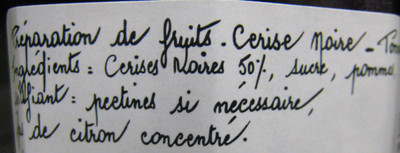 Préparation de fruits. Cerise Noire -
Ingrédients: Cerises Noires 50%, sucre, pommes
Gélifiant: pectines si nécessaire,
de citron concentré.